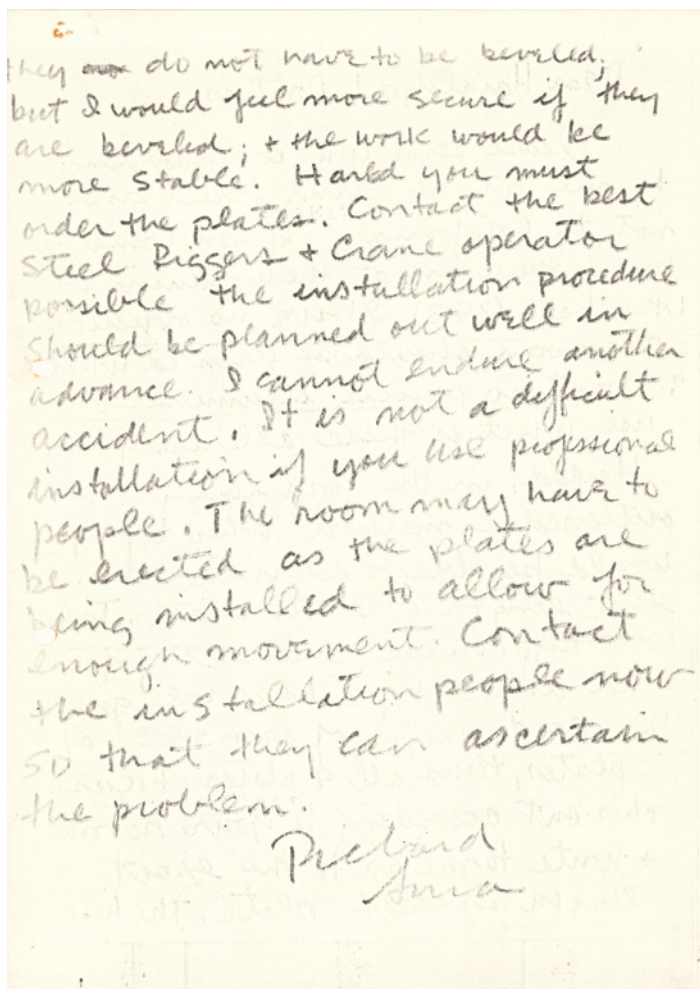 they do not have to be beveled;
but I would feel more secure if they
are beveled; + the work would be
more stable. Harald you must
order the plates. Contact the best
Steel Riggers + Crane operator
possible the installation procedure
should be planned out well in
advance. I cannot endure another
accident. It is not a difficult
installation if you use professional
people. The room may have to
be erected as the plates are
being installed to allow for
enough movement. Contact
the installation people now
so that they can ascertain
the problem.
Richard
Serra